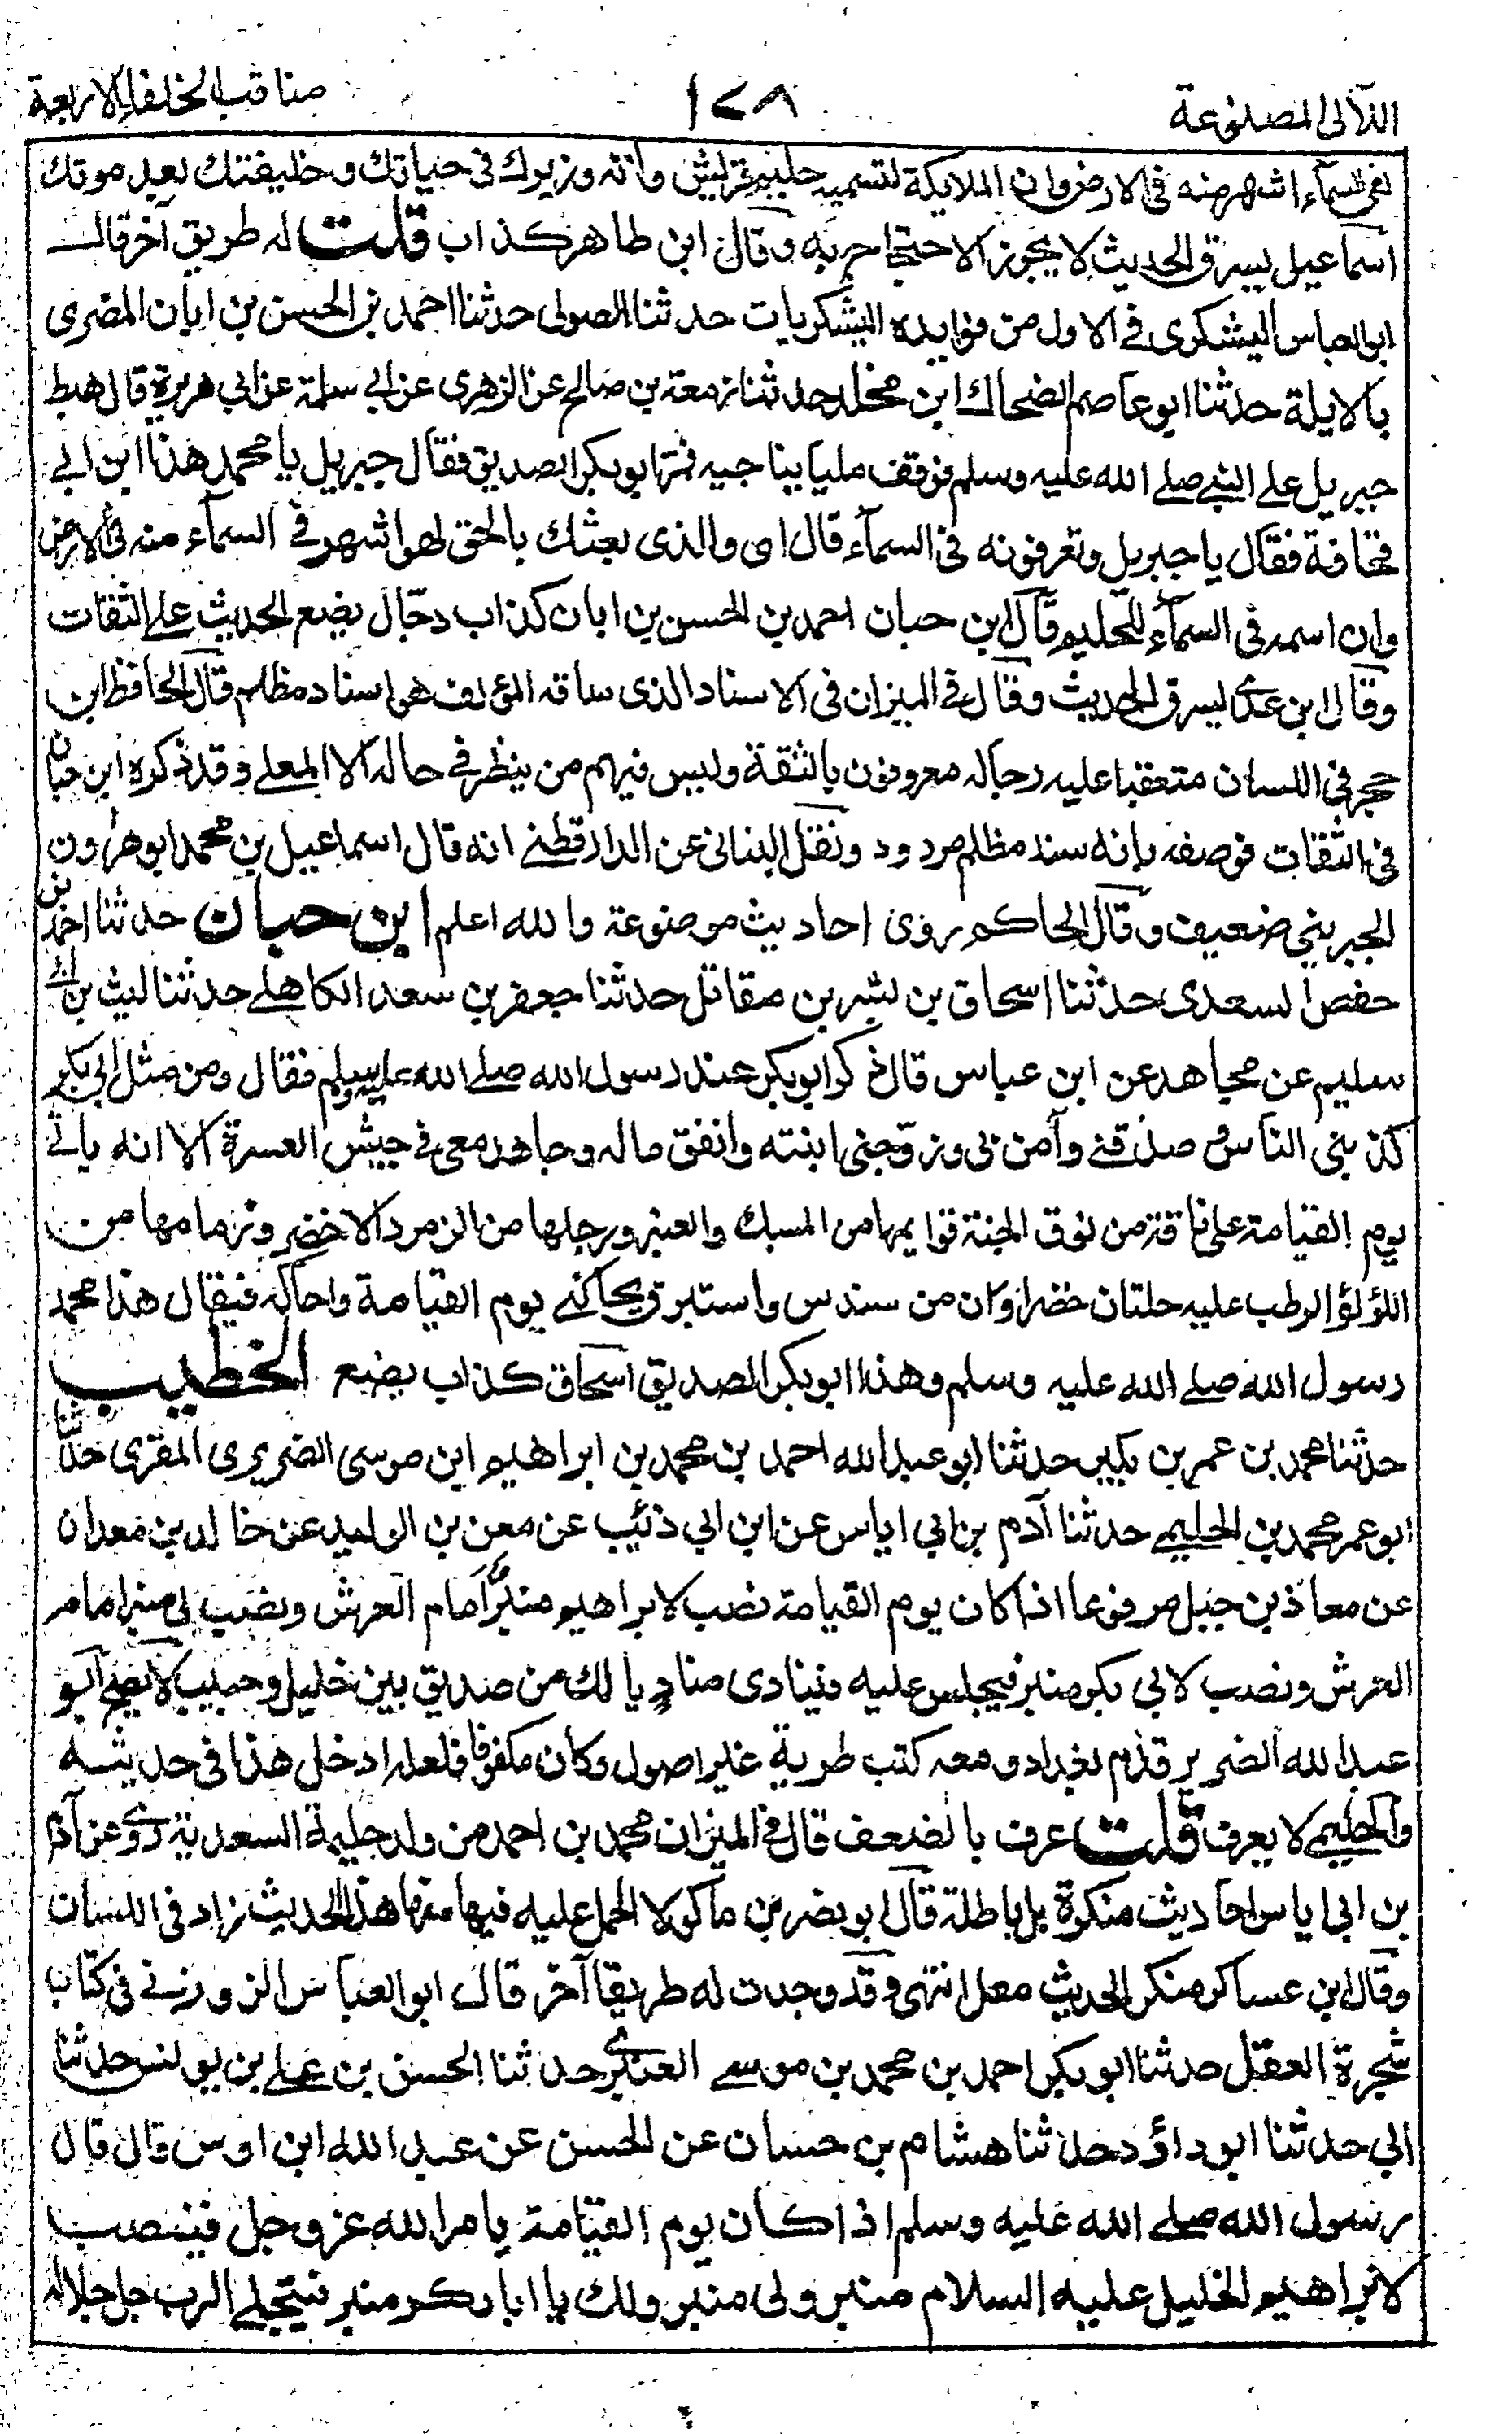 اللآلى المصنوعة ١٤٨ مناقب الخلفاء الاربعة
لفى السمآء اشهر منه فى الارض وان الملايكة لتسميه حليم قريش وانه وزيرك فى حياتك وخليفتك بعد موتك
اسماعيل يسرق الحديث لا يجوز الاحتجاج به وقال ابن طاهر كذاب قلت له طريق آخر قال
ابو العباس اليشكرى فے الاول من فوايده اليشكريات حدثنا الصولى حدثنا احمد بن الحسن بن ابان المصرى
بالايلة حدثنا ابو عاصم الضحاك ابن مخلد حدثنا زمعة بن صالح عن الزهرى عن ابى سلمة عن ابى هريرة قال هبط
جبريل على النبے صلے الله عليه وسلم فوقف مليا يناجيه فمر ابو بكر الصديق فقال جبريل يا محمد هذا ابن ابے
قحافة فقال يا جبريل وتعرفونه فى السمآء قال اى والذى بعثك بالحق لهو اشهر فے السمآء منه فى الارض
وان اسمه فى السمآء للحليم قال ابن حبان احمد بن الحسن بن ابان كذاب دجال يضع الحديث على الثقات
وقال ابن عدى يسرق الحديث وقال فے الميزان فى الاسناد الذى ساقه المؤلف هو اسناد مظلم قال الحافظ ابن
حجر فى اللسان متعقبا عليه رجاله معروفون بالثقة وليس فيهم من ينظر فے حاله الا المعلے وقد ذكره ابن حبان
فى الثقات فوصفه بانه سند مظلم مردود ونقل البنانى عن الدارقطنے انه قال اسماعيل بن محمد ابو هارون
الجبرينى ضعيف وقال الحاكم روى احاديث موضوعة والله اعلم ابن حبان حدثنا احمد بن
حفص السعدى حدثنا اسحاق بن بشر بن مقاتل حدثنا جعفر بن سعد الكاهلے حدثنا ليث بن ابى
سليم عن مجاهد عن ابن عباس قال ذكر ابو بكر عند رسول الله صلے الله عليه وسلم فقال ومن مثل ابى بكر
كذبنى الناس وصدقنے وآمن بى وزوجنى ابنته وانفق ماله وجاهد معى فے جيش العسرة الا انه ياتے
يوم القيامة على ناقة من نوق الجنة قوايمها من المسك والعنبر ورجلها من الزمرد الاخضر وزمامها من
اللؤلؤ الرطب عليه حلتان خضراوان من سندس واستبرق يحاكنے يوم القيامة واحاكه فيقال هذا محمد
رسول الله صلے الله عليه وسلم وهذا ابو بكر الصديق اسحاق كذاب يضع الخطيب
حدثنا محمد بن عمر بن بكير حدثنا ابو عبد الله احمد بن محمد بن ابراهيم ابن موسى الضريرى المقرى حدثنا
ابو عمر محمد بن الحليمے حدثنا آدم بن ابى اياس عن ابن ابى ذئيب عن معن بن الوليد عن خالد بن معدان
عن معاذ بن جبل مرفوعا اذا كان يوم القيامة نصب لابراهيم منبر امام العرش ونصب لى منبر امام
العرش ونصب لابى بكر منبر فيجلس عليه فينادى مناد يا لك من صديق بين خليل وحبيب لا يصح ابو
عبد الله الضرير قدم بغداد ومعه كتب طرية غير اصول وكان مكفوفا فلعله ادخل هذا فى حديثه
والحليمے لا يعرف قلت عرف بالضعف قال فے الميزان محمد بن احمد من ولد حليمة السعدية روى عن آدم
بن ابى اياس احاديث منكرة بل باطلة قال ابو نصر بن ماكولا الحمل عليه فيها منها هذا الحديث زاد فى اللسان
وقال ابن عساكر منكر الحديث معل انتهى وقد وجدت له طريقا آخر قال ابو العباس الزوزنے فى كتاب
شجرة العقل حدثنا ابو بكر احمد بن محمد بن موسے العنبرى حدثنا الحسن بن على بن يونس حدثنا
ابى حدثنا ابو داؤد حدثنا هشام بن حسان عن الحسن عن عبد الله ابن اوس قال قال
رسول الله صلے الله عليه وسلم اذا كان يوم القيامة يامر الله عز وجل فينصب
لابراهيم الخليل عليه السلام منبر ولى منبر ولك يا ابا بكر منبر فيتجلے الرب جل جلاله